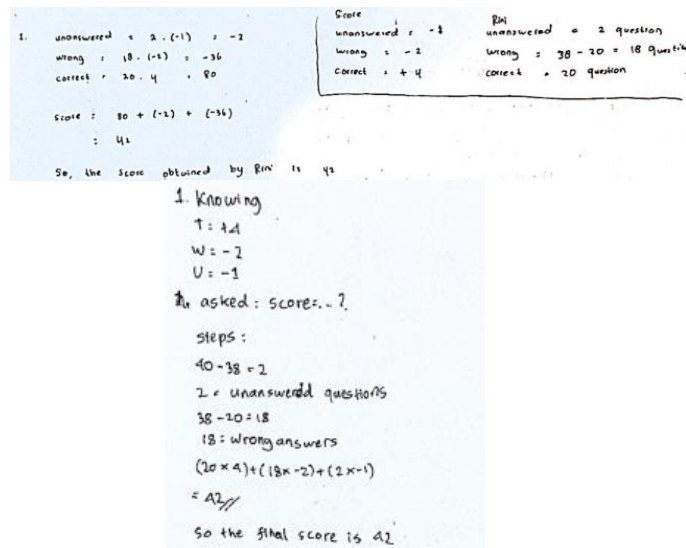 1. unanswered : 2 . (-1) : -2
wrong : 18 . (-2) : -36
correct : 20 . 4 : 80
Score : 80 + (-2) + (-36)
: 42
So, the score obtained by Rini is 42
Score
unanswered : -1
wrong : -2
correct : +4
Rini
unanswered = 2 question
wrong : 38 - 20 = 18 question
correct = 20 question
1. Knowing
T : +4
W : -2
U : -1
asked : score=...?
steps :
40-38 = 2
2 = unanswered questions
38-20 = 18
18 : wrong answers
(20 x 4)+(18x -2)+(2x-1)
= 42//
So the final score is 42